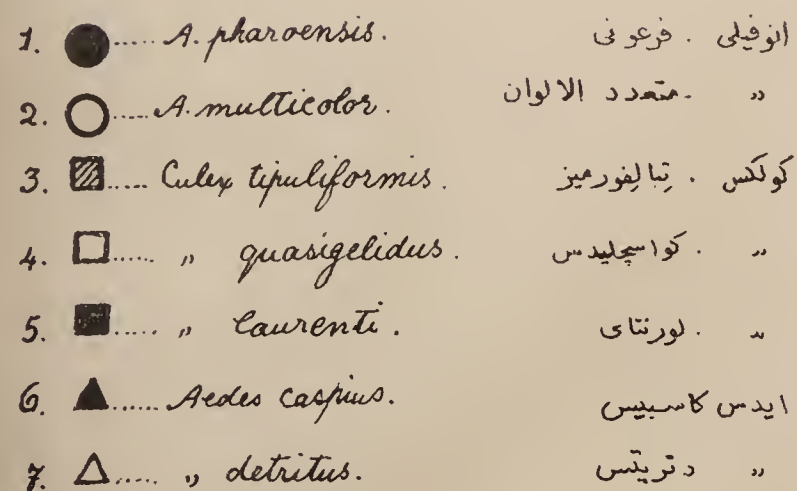 1. ..... A. pharoensis. انوفيلى . فرعونى
2. ..... A. multicolor. „ . متعدد الالوان
3. ..... Culex tipuliformis. كولكس . تِبالِفورميز
4. ..... „ quasigelidus. „ . كواسيجليدس
5. ..... „ laurenti. „ . لورنتاى
6. ..... Aedes caspius. ايدس كاسبيس
7. ..... „ detritus. „ دتريتس